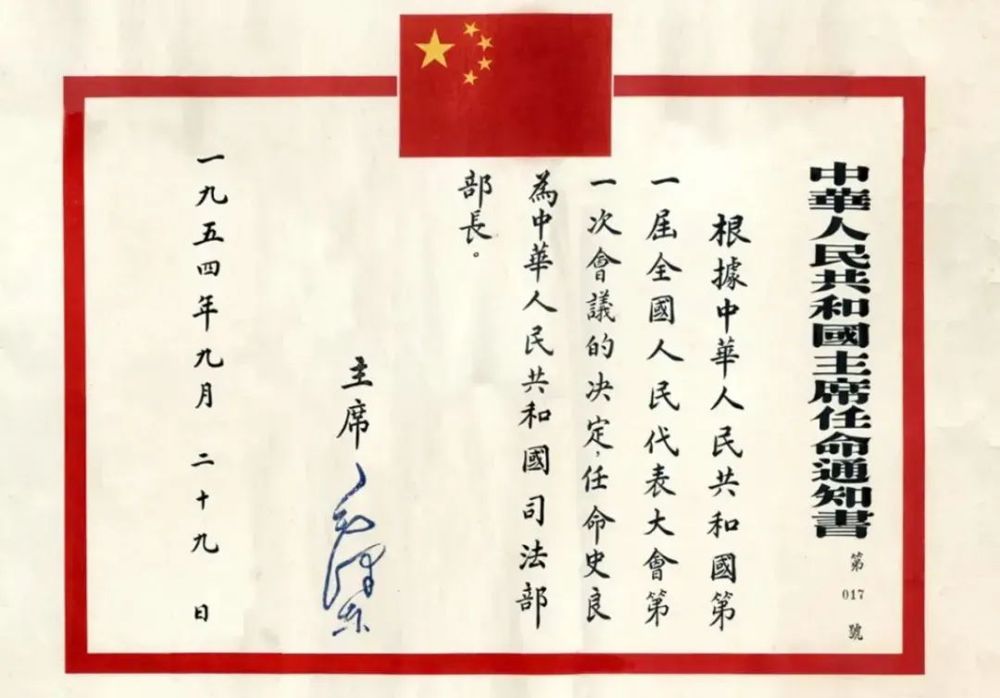 中華人民共和國主席任命通知書
第017號
根據中華人民共和國第
一屆全國人民代表大會第
一次會議的决定，任命史良
為中華人民共和國司法部
部長。
主席 毛澤東
一九五四年九月二十九日